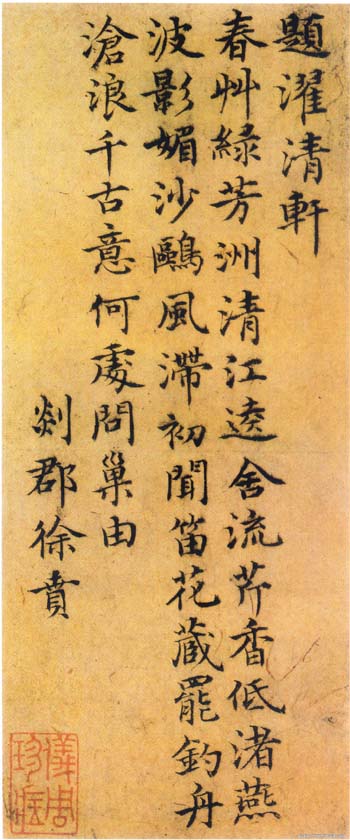 題濯清軒
春艸綠芳洲清江遶舍流芹香低渚燕
波影媚沙鷗風滯初聞笛花藏罷釣舟
滄浪千古意何處問巢由
剡郡徐賁
儀周珍藏